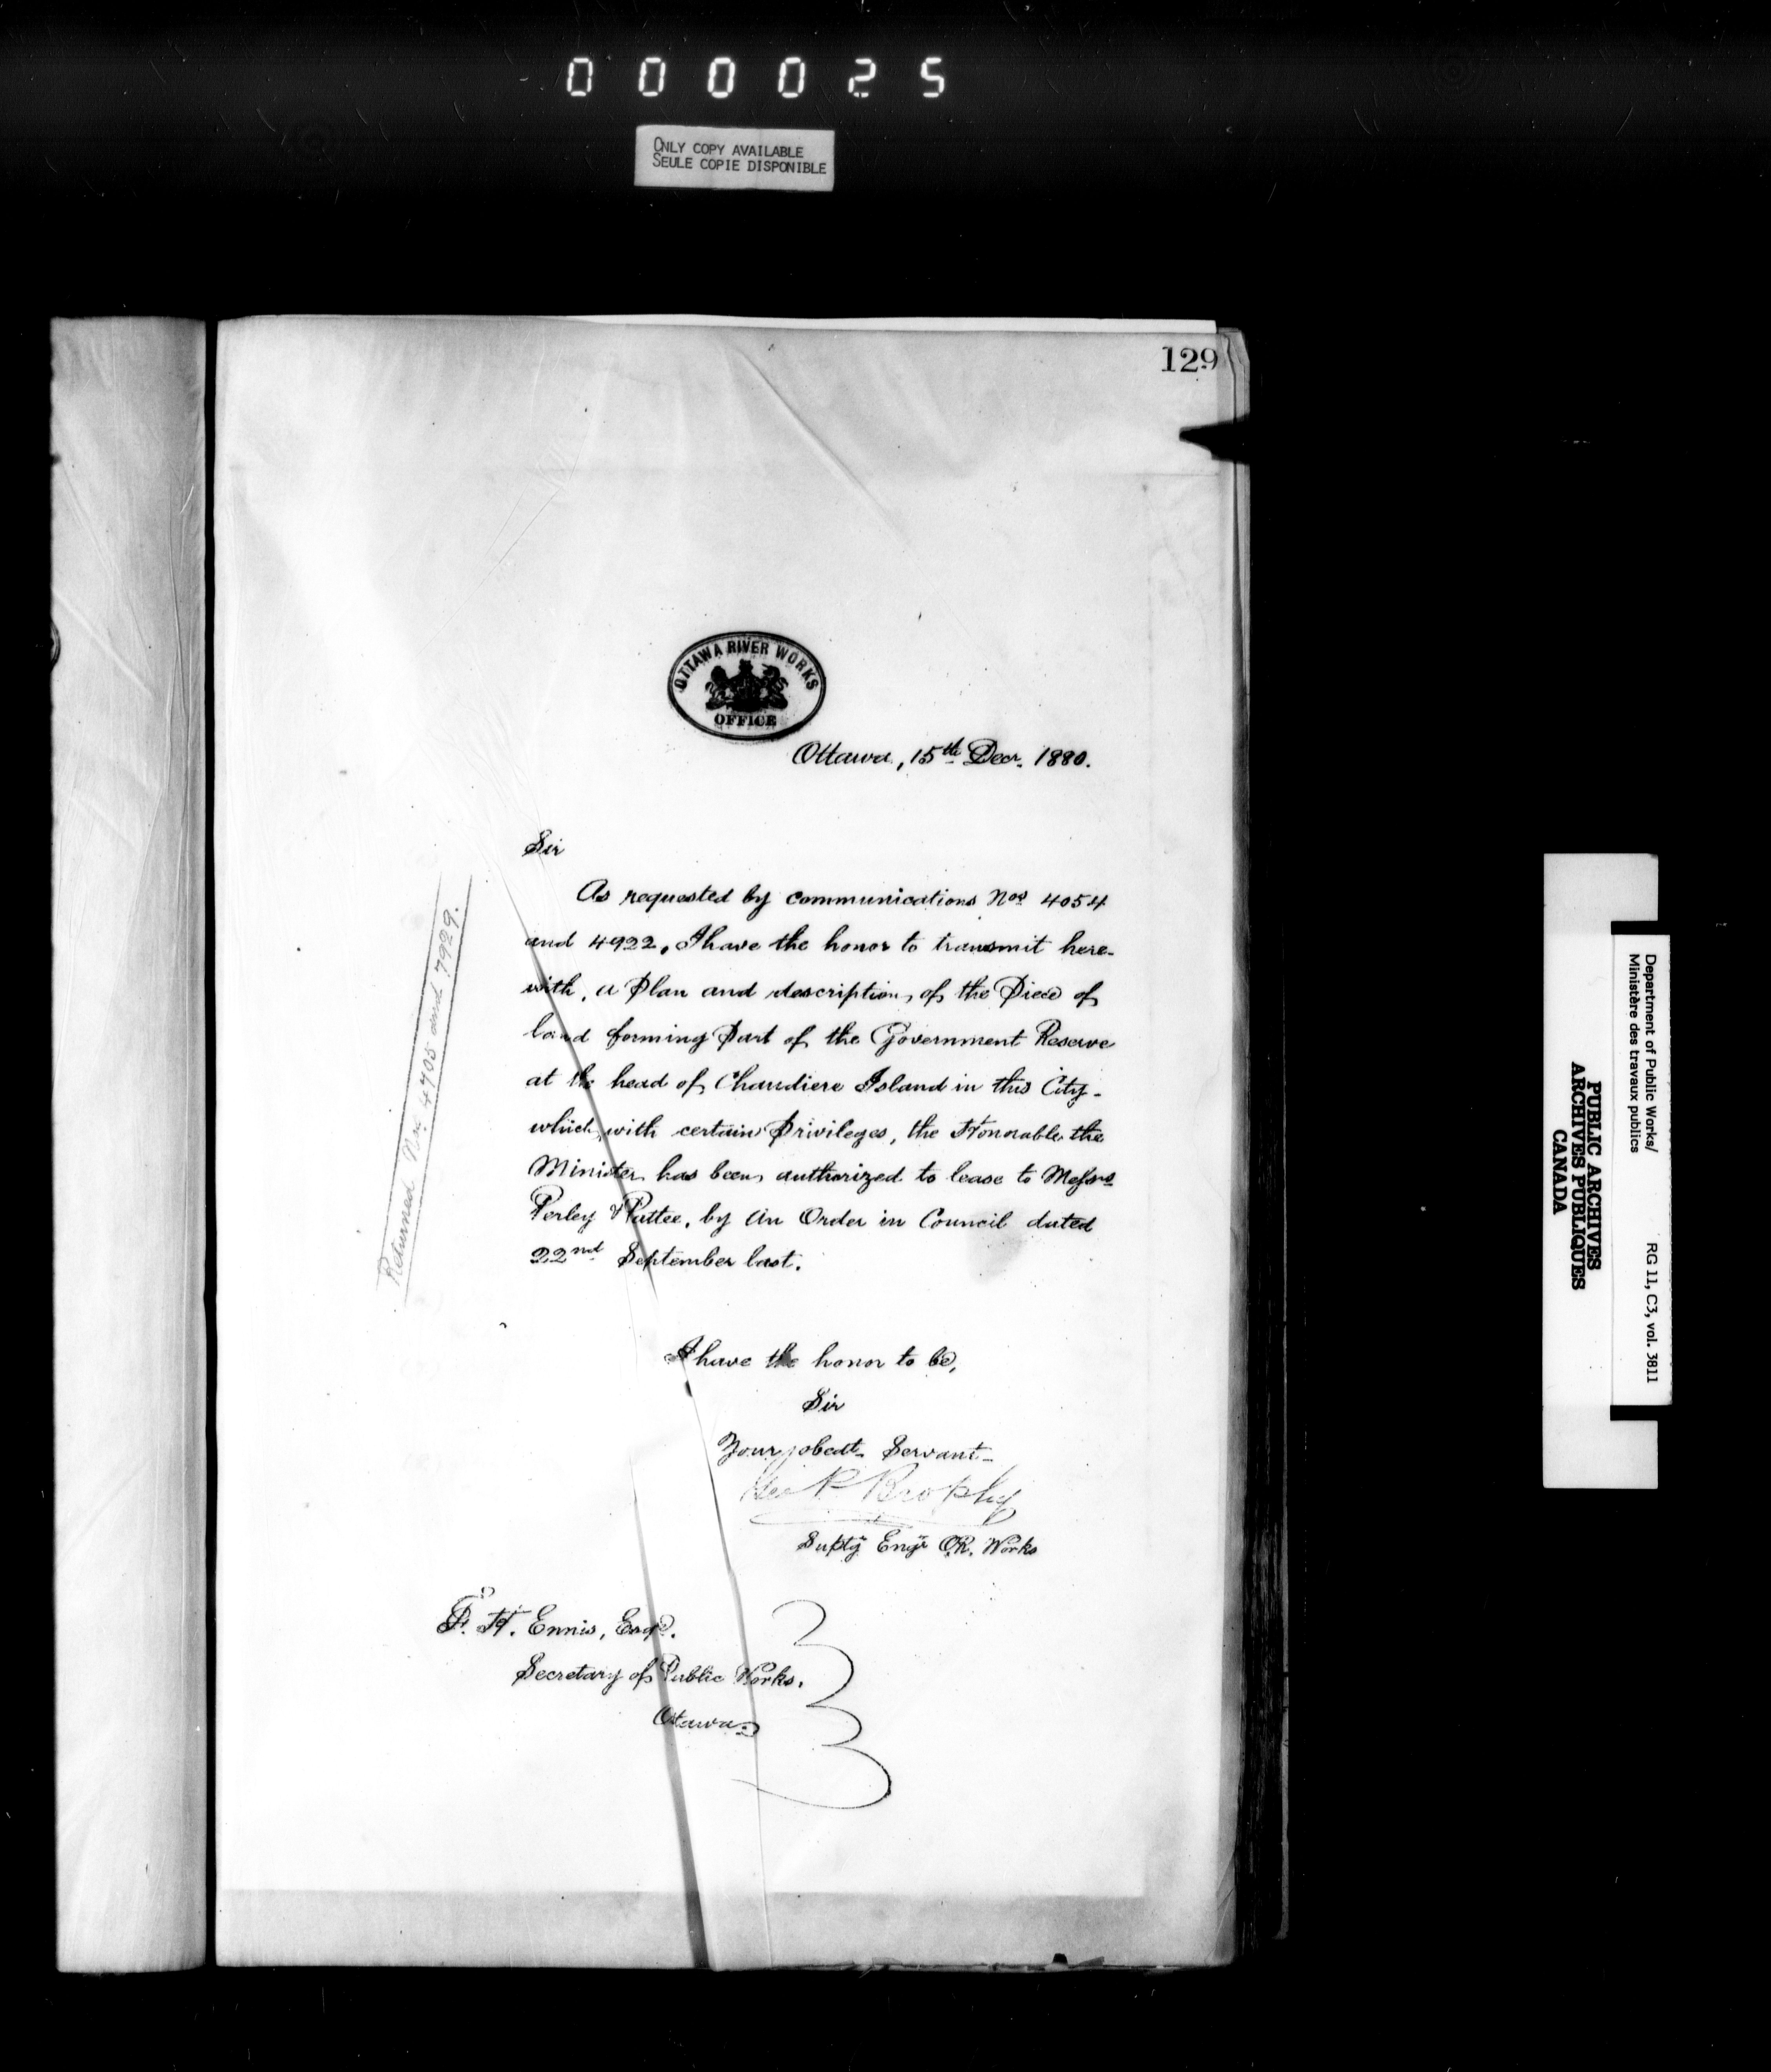 000025
ONLY COPY AVAILABLE
SEULE COPIE DISPONIBLE
129
OTTAWA RIVER WORKS
OFFICE
Ottawa, 15th Decr. 1880.
Sir
As requested by communications Nos 4054
and 4922, I have the honor to transmit here-
with, a Plan and description of the Piece of
land forming Part of the Government Reserve
at the head of Chaudiere Island in this City -
which, with certain Privileges, the Honorable the
Minister has been authorized to lease to Messrs
Perley & Pattee, by an Order in Council dated
22nd September last.
I have the honor to be,
Sir
Your obedt Servant -
Geo P Brophy
Supty Engr O.R. Works
F. H. Ennis, Esqr.
Secretary of Public Works.
Ottawa
Returned Nos 4705 and 7929.
Department of Public Works/
Ministère des travaux publics
RG 11, C3, vol. 3811
PUBLIC ARCHIVES
ARCHIVES PUBLIQUES
CANADA